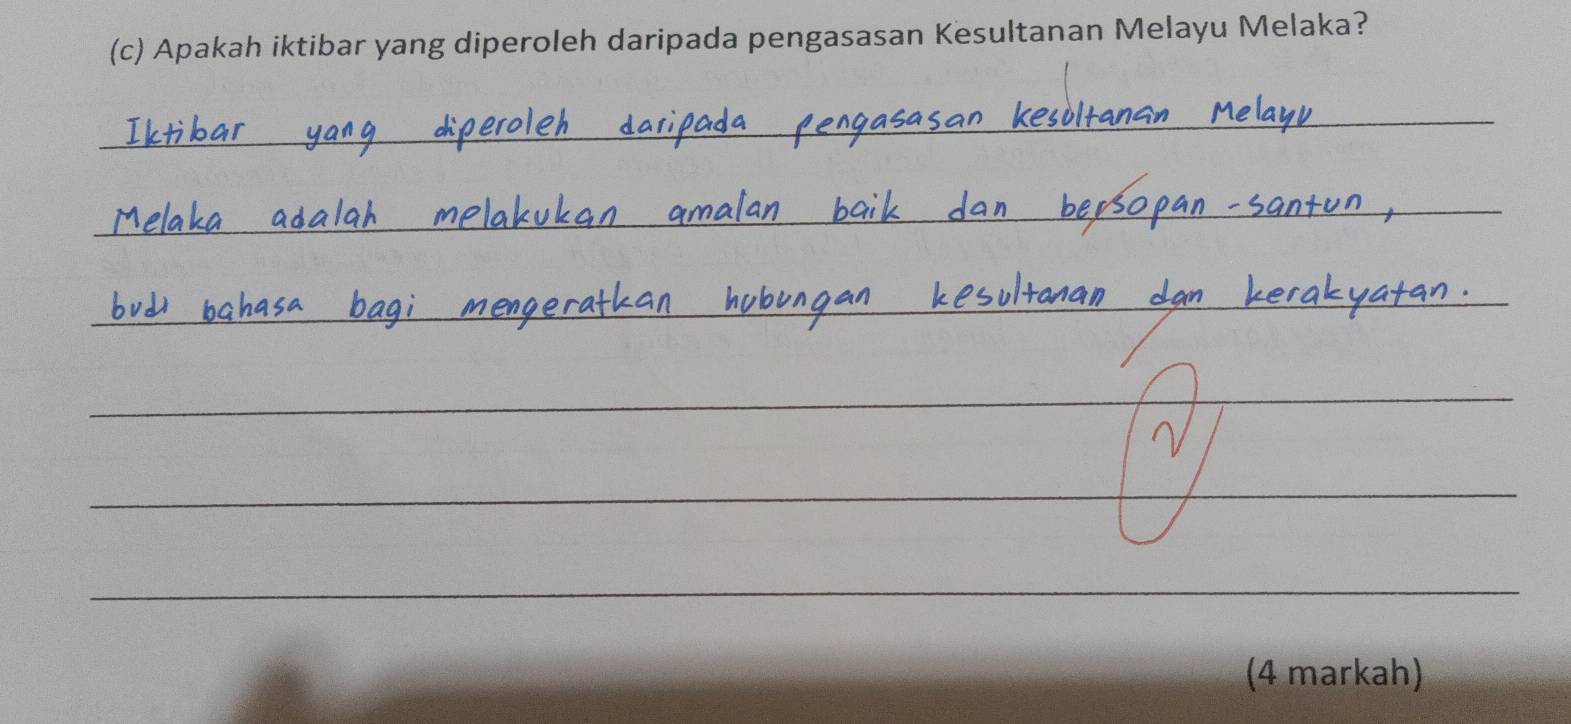 (c) Apakah iktibar yang diperoleh daripada pengasasan Kesultanan Melayu Melaka?
Iktibar yang diperoleh daripada pengasasan kesultanan Melayu
Melaka adalah melakukan amalan baik dan bersopan-santun,
budi bahasa bagi mengeratkan hubungan kesultanan dan kerakyatan.
2
(4 markah)